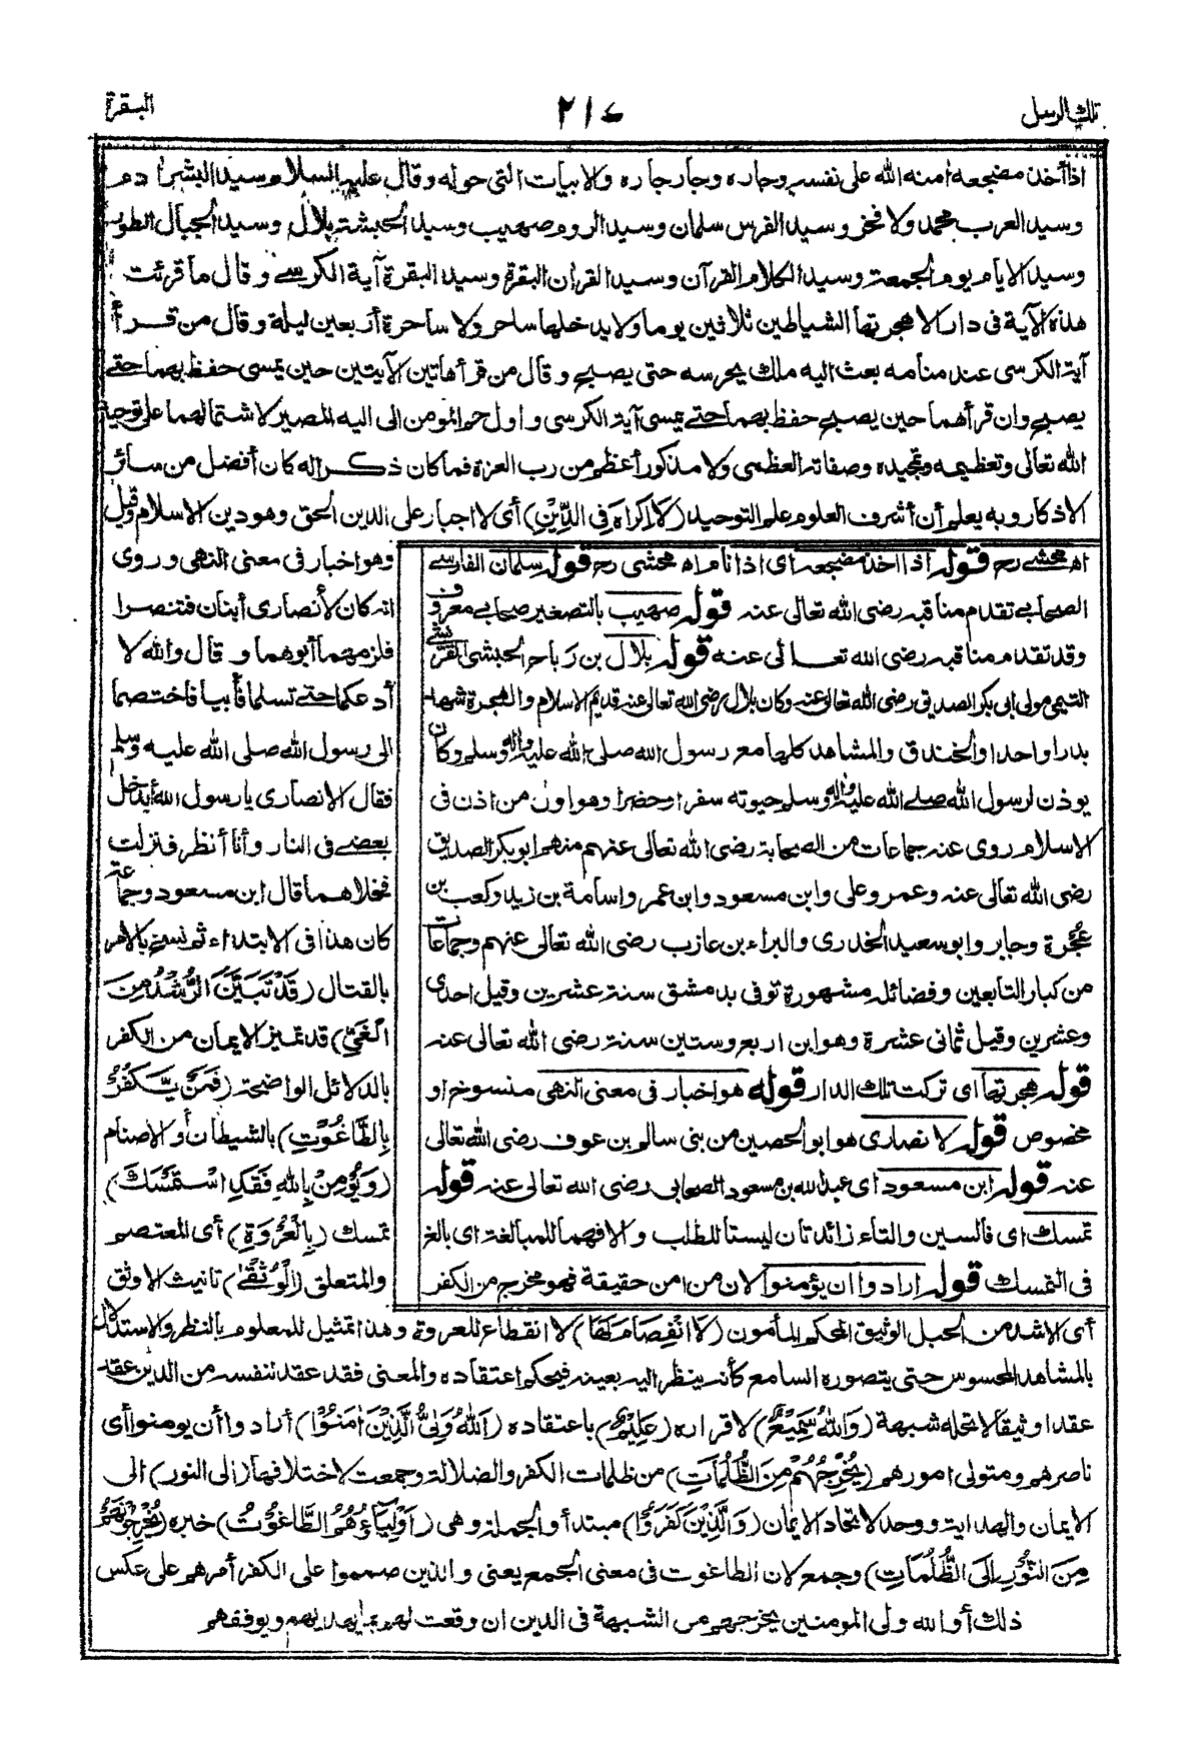 تلك الرسل
٢١٧
البقرة
اذا أخذ مضجعه امنه الله على نفسه وجاره وجار جاره والابيات التى حوله وقال عليه السلام سيد البشر ادم
وسيد العرب محمد ولا فخر وسيد الفرس سلمان وسيد الروم صهيب وسيد الحبشة بلال وسيد الجبال الطور
وسيد الايام يوم الجمعة وسيد الكلام القرآن وسيد القران البقرة وسيد البقرة آية الكرسى وقال ما قرئت
هذه الآية فى دار الا هجرتها الشياطين ثلاثين يوما ولا يدخلها ساحر ولا ساحرة أربعين ليلة وقال من قرأ
آية الكرسى عند منامه بعث اليه ملك يحرسه حتى يصبح وقال من قرأ هاتين الآيتين حين يمسى حفظ بهما حتى
يصبح وان قرأهما حين يصبح حفظ بهما حتى يمسى آية الكرسى واول حم المومن الى اليه المصير لاشتمالهما على توحيد
الله تعالى وتعظيمه وتمجيده وصفاته العظمى ولا مذكور أعظم من رب العزة فما كان ذكرا له كان أفضل من سائر
الاذكار وبه يعلم أن أشرف العلوم علم التوحيد (لَا إِكْرَاهَ فِى الدِّيْنِ) أى لا اجبار على الدين الحق وهو دين الاسلام وقيل
وهو اخبار فى معنى النهى وروى
انه كان لأنصارى أبنان فتنصرا
فلزمهما أبوهما وقال والله لا
أدعكما حتى تسلما فأبيا فاختصما
الى رسول الله صلى الله عليه وسلم
فقال الانصارى يا رسول الله أيدخل
بعضى فى النار وأنا أنظر فنزلت
فخلاهما قال ابن مسعود وجماعة
كان هذا فى الابتداء ثم نسخ بالامر
بالقتال (قَدْ تَبَيَّنَ الرُّشْدُ مِنَ
الْغَىِّ) قد تميز الايمان من الكفر
بالدلائل الواضحة (فَمَنْ يَّكْفُرْ
بِالطَّاغُوْتِ) بالشيطان أو الاصنام
(وَيُؤْمِنْ بِاللهِ فَقَدِ اسْتَمْسَكَ)
تمسك (بِالْعُرْوَةِ) أى المعتصم
والمتعلق (الْوُثْقٰى) تانيث الاوثق
أى الاشد من الحبل الوثيق المحكم المأمون (لَا انْفِصَامَ لَهَا) لا انقطاع للعروة وهذا تمثيل للمعلوم بالنظر والاستدلال
بالمشاهد المحسوس حتى يتصوره السامع كأنه ينظر اليه بعينه فيحكم اعتقاده والمعنى فقد عقد لنفسه من الدين عقد
عقدا وثيقا لا تحله شبهة (وَاللهُ سَمِيْعٌ) لاقراره (عَلِيْمٌ) باعتقاده (اَللهُ وَلِىُّ الَّذِيْنَ اٰمَنُوْا) أرادوا أن يومنوا أى
ناصرهم ومتولى امورهم (يُخْرِجُهُمْ مِنَ الظُّلُمَاتِ) من ظلمات الكفر والضلالة وجمعت لاختلافها (الى النور) الى
الايمان والهداية ووحد لاتحاد الايمان (وَالَّذِيْنَ كَفَرُوْا) مبتدأ والجملة وهى (أَوْلِيَاءُهُمُ الطَّاغُوْتُ) خبره (يُخْرِجُوْنَهُمْ
مِنَ النُّوْرِ اِلَى الظُّلُمَاتِ) وجمع لان الطاغوت فى معنى الجمع يعنى والذين صمموا على الكفر أمرهم على عكس
ذلك أو الله ولى المومنين يخرجهم من الشبهة فى الدين ان وقعت لهم بما يهديهم ويوفقهم
اه محشى رح قوله اذا اخذ مضجعه اى اذا نام اه محشى رح قوله سلمان الفارسى
الصحابى تقدم مناقبه رضى الله تعالى عنه قوله صهيب بالتصغير صحابى معروف
وقد تقدم مناقبه رضى الله تعالى عنه قوله بلال بن رباح الحبشى القرشى
التيمى مولى ابى بكر الصديق رضى الله تعالى عنه وكان بلال رضى الله تعالى عنه قديم الاسلام والهجرة شهد
بدرا واحدا والخندق والمشاهد كلها مع رسول الله صلى الله عليه واله وسلم وكان
يوذن لرسول الله صلى الله عليه واله وسلم حيوته سفرا وحضرا وهو اول من اذن فى
الاسلام روى عنه جماعات من الصحابة رضى الله تعالى عنهم منهم ابو بكر الصديق
رضى الله تعالى عنه وعمر وعلى وابن مسعود وابن عمر واسامة بن زيد وكعب بن
عُجْرة وجابر وابو سعيد الخدرى والبراء بن عازب رضى الله تعالى عنهم وجماعات
من كبار التابعين وفضائله مشهورة توفى بدمشق سنة عشرين وقيل احدى
وعشرين وقيل ثمانى عشرة وهو ابن اربع وستين سنة رضى الله تعالى عنه
قوله هجرتها اى تركت تلك الدار قوله هو اخبار فى معنى النهى منسوخ او
مخصوص قوله لانصارى هو ابو الحصين من بنى سالم بن عوف رضى الله تعالى
عنه قوله ابن مسعود اى عبد الله بن مسعود الصحابى رضى الله تعالى عنه قوله
تمسك اى فالسين والتاء زائدتان ليستا للطلب والافهما للمبالغة اى بالغ
فى التمسك قوله ارادوا ان يؤمنوا لان من امن حقيقة فهو مخرج من الكفر